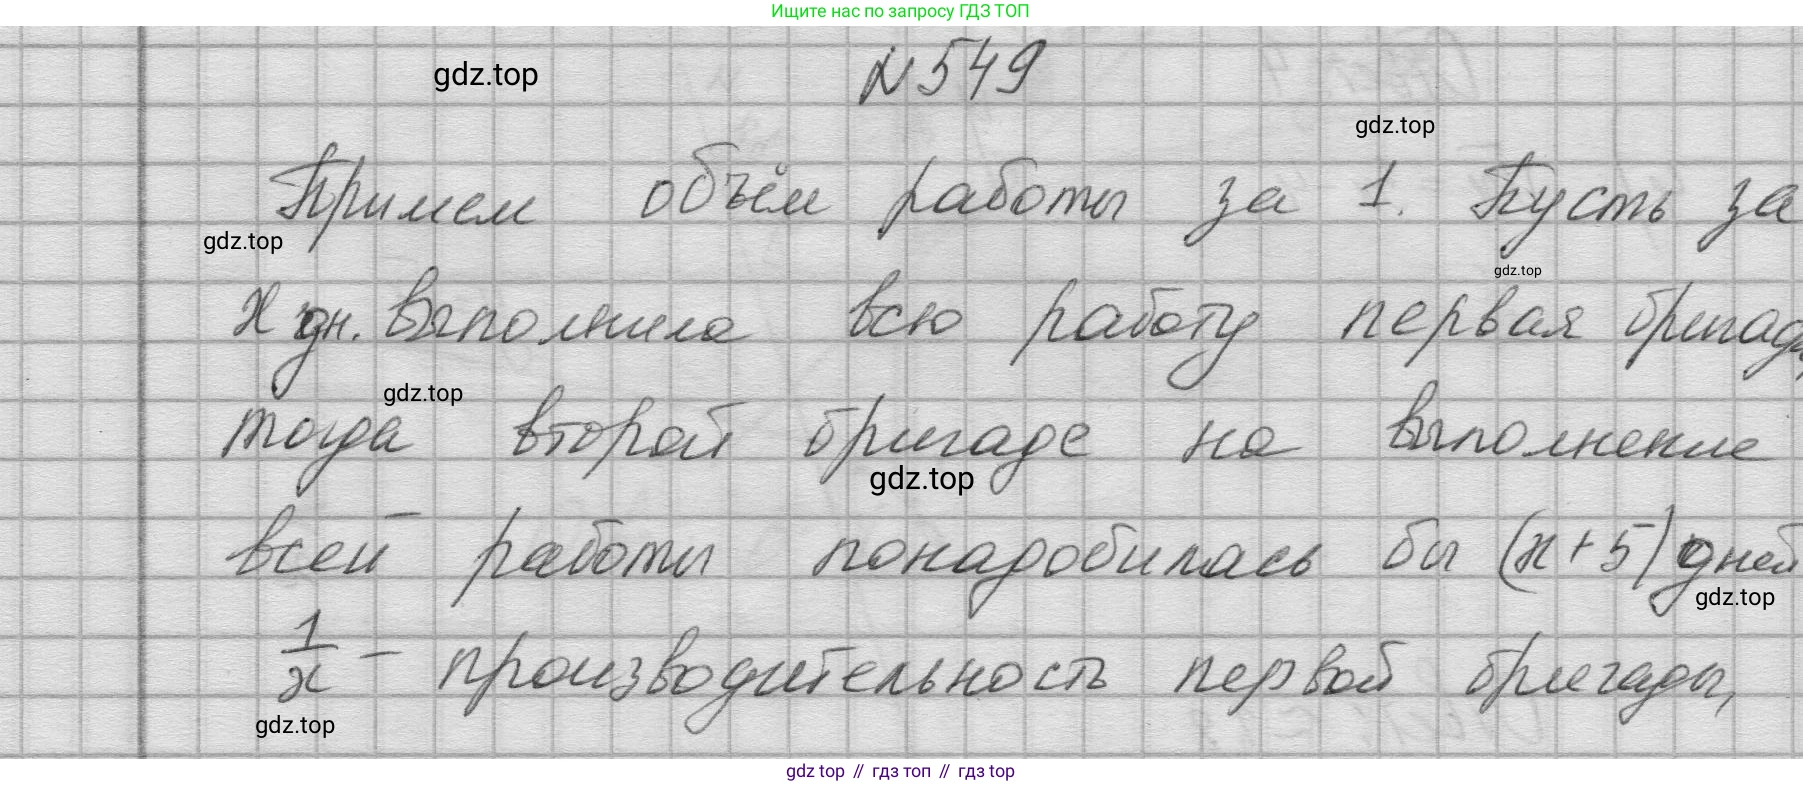 Ищите нас по запросу ГДЗ ТОП
№549
gdz.top
gdz.top
Примем объём работы за 1. Пусть за
gdz.top
gdz.top
х дн. выполнила всю работу первая бригада,
gdz.top
тогда второй бригаде на выполнение
gdz.top
всей работы понадобилась бы (x+5) дней
gdz.top
1/x - производительность первой бригады,
gdz.top
gdz top // гдз топ // гдз top